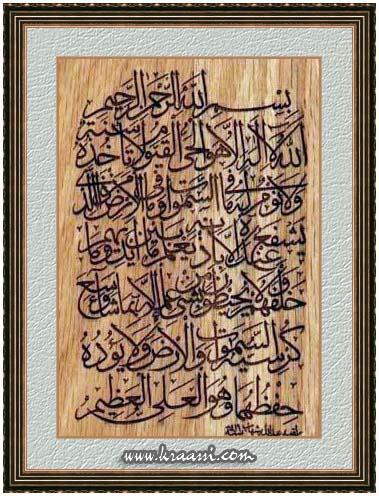 بسم الله الرحمن الرحيم
الله لا اله الا هو الحي القيوم لا تأخذه سنة
ولا نوم له ما في السموات وما في الارض من ذا الذي
يشفع عنده الا باذنه يعلم ما بين ايديهم وما
خلفهم ولا يحيطون بشيء من علمه الا بما شاء وسع
كرسيه السموات والارض ولا يؤده
حفظهما وهو العلي العظيم
www.kraassi.com